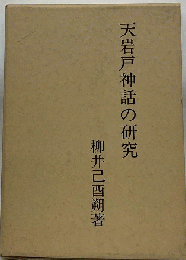 天岩戸神話の研究
柳井己酉朔著